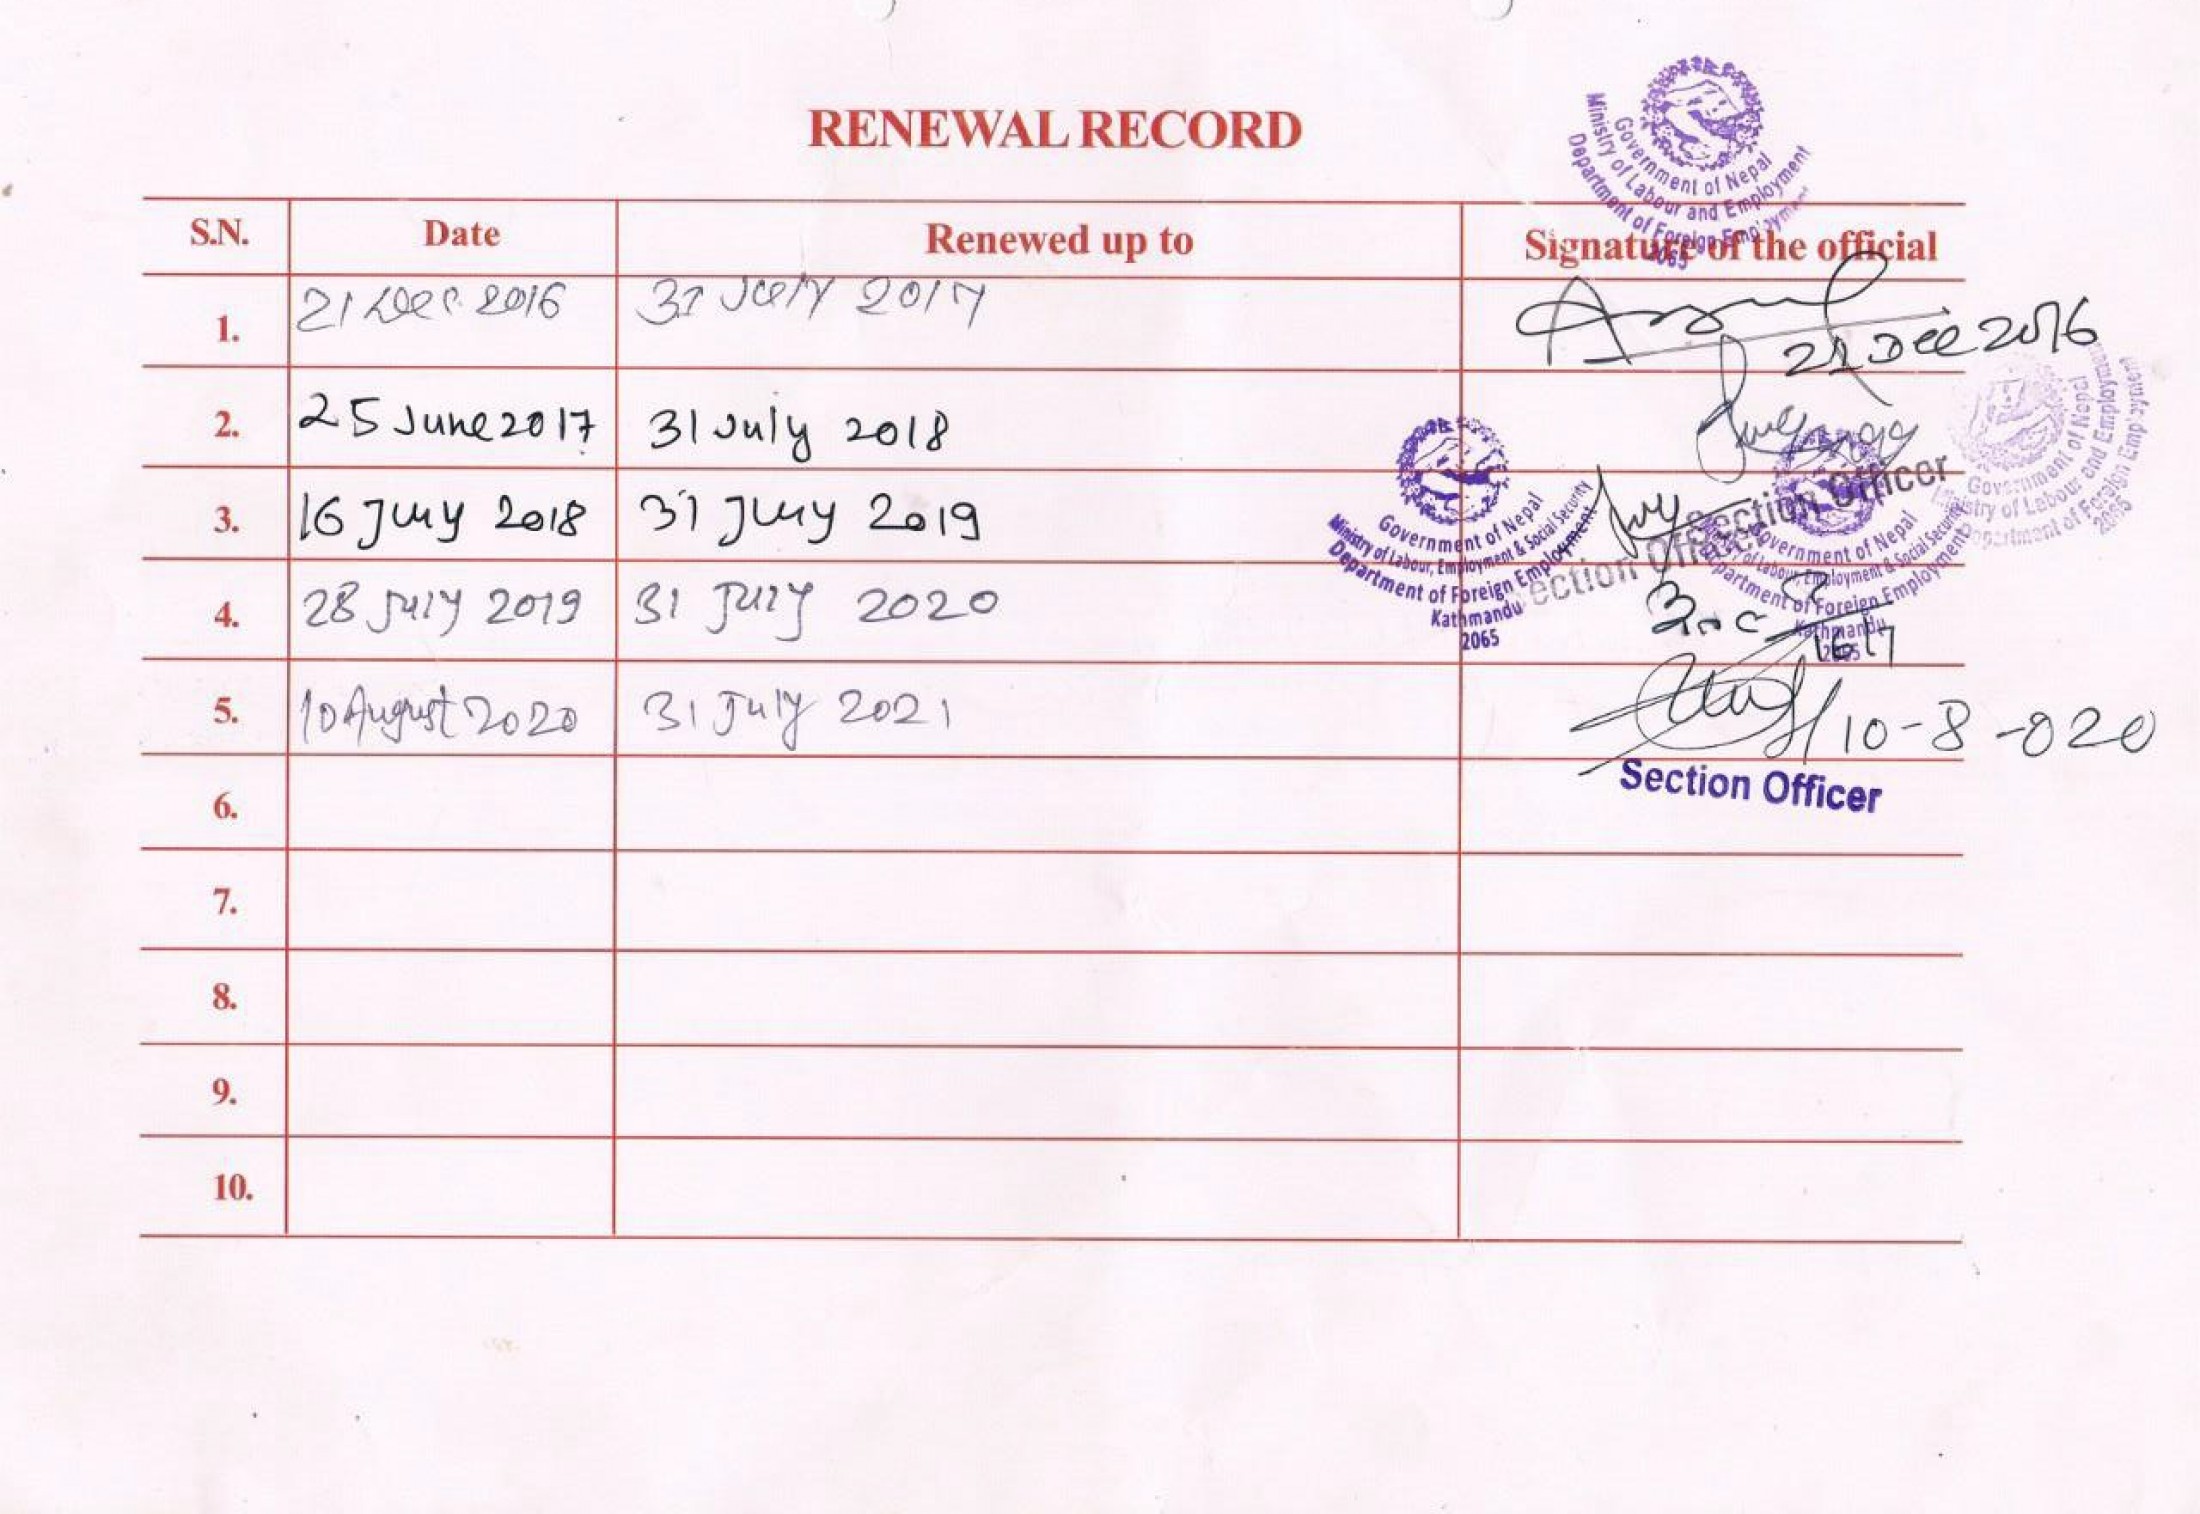 RENEWAL RECORD
Government of Nepal
Ministry of Labour and Employment
Department of Foreign Employment
2065
S.N. Date Renewed up to Signature of the official
1. 21 Dec. 2016 31 July 2017
21 Dec 2016
2. 25 June 2017 31 July 2018
Section Officer
Government of Nepal
Ministry of Labour and Employment
Department of Foreign Employment
2065
3. 16 July 2018 31 July 2019
Section Officer
Government of Nepal
Ministry of Labour, Employment & Social Security
Department of Foreign Employment
Kathmandu
2065
Government of Nepal
Ministry of Labour, Employment & Social Security
Department of Foreign Employment
Kathmandu
2065
4. 28 July 2019 31 July 2020
5. 10 August 2020 31 July 2021
10-8-020
Section Officer
6.
7.
8.
9.
10.